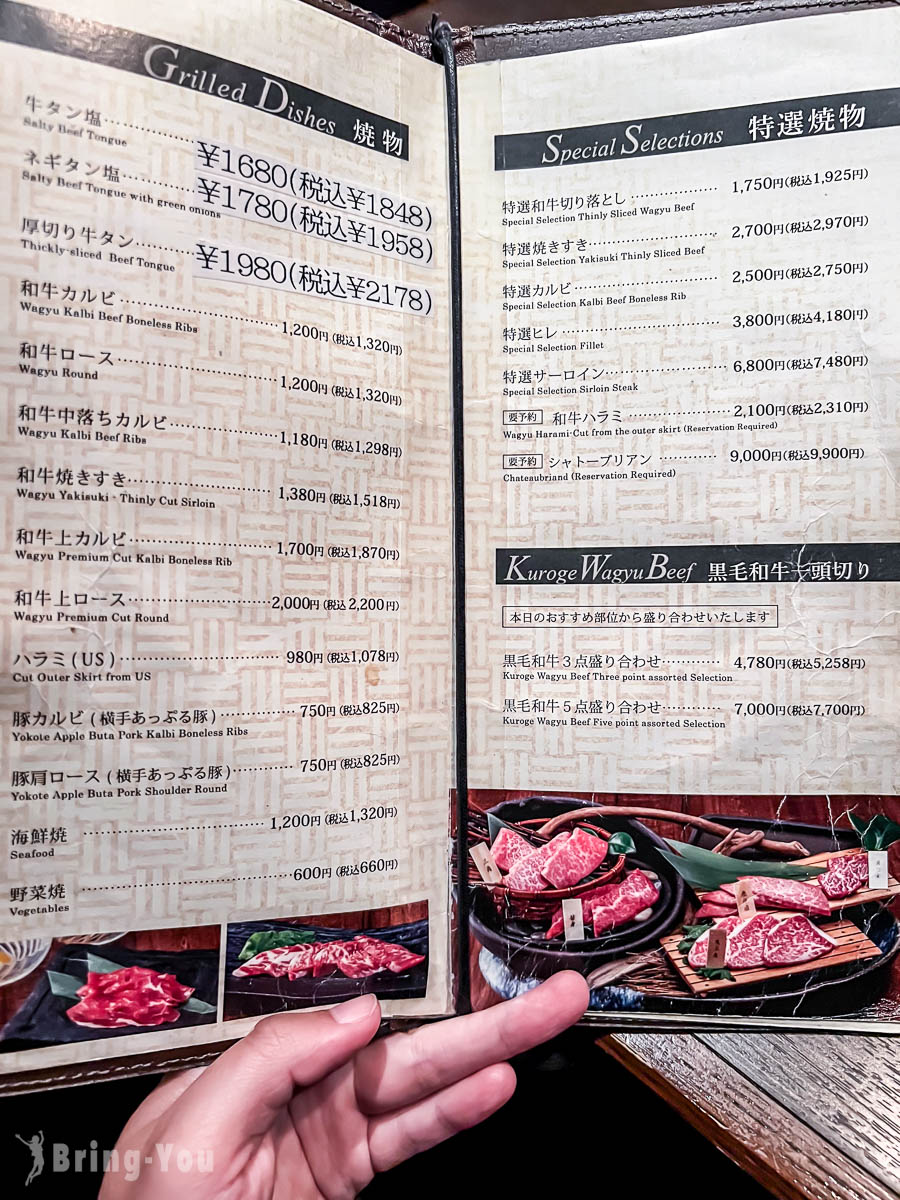 Grilled Dishes 焼物
牛タン塩
¥1680(税込¥1848)
Salty Beef Tongue
ネギタン塩
¥1780(税込¥1958)
Salty Beef Tongue with green onions
厚切り牛タン
¥1980(税込¥2178)
Thickly-sliced Beef Tongue
和牛カルビ 1,200円(税込1,320円)
Wagyu Kalbi Beef Boneless Ribs
和牛ロース 1,200円(税込1,320円)
Wagyu Round
和牛中落ちカルビ 1,180円(税込1,298円)
Wagyu Kalbi Beef Ribs
和牛焼きすき 1,380円(税込1,518円)
Wagyu Yakisuki・Thinly Cut Sirloin
和牛上カルビ 1,700円(税込1,870円)
Wagyu Premium Cut Kalbi Boneless Rib
和牛上ロース 2,000円(税込 2,200円)
Wagyu Premium Cut Round
ハラミ(US) 980円(税込1,078円)
Cut Outer Skirt from US
豚カルビ(横手あっぷる豚) 750円(税込825円)
Yokote Apple Buta Pork Kalbi Boneless Ribs
豚肩ロース(横手あっぷる豚) 750円(税込825円)
Yokote Apple Buta Pork Shoulder Round
海鮮焼 1,200円(税込1,320円)
Seafood
野菜焼 600円(税込660円)
Vegetables
Special Selections 特選焼物
特選和牛切り落とし 1,750円(税込1,925円)
Special Selection Thinly Sliced Wagyu Beef
特選焼きすき 2,700円(税込2,970円)
Special Selection Yakisuki Thinly Sliced Beef
特選カルビ 2,500円(税込2,750円)
Special Selection Kalbi Beef Boneless Rib
特選ヒレ 3,800円(税込4,180円)
Special Selection Fillet
特選サーロイン 6,800円(税込7,480円)
Special Selection Sirloin Steak
要予約 和牛ハラミ 2,100円(税込2,310円)
Wagyu Harami-Cut from the outer skirt (Reservation Required)
要予約 シャトーブリアン 9,000円(税込9,900円)
Chateaubriand (Reservation Required)
Kuroge Wagyu Beef 黒毛和牛一頭切り
本日のおすすめ部位から盛り合わせいたします
黒毛和牛3点盛り合わせ 4,780円(税込5,258円)
Kuroge Wagyu Beef Three point assorted Selection
黒毛和牛5点盛り合わせ 7,000円(税込7,700円)
Kuroge Wagyu Beef Five point assorted Selection
Bring-You